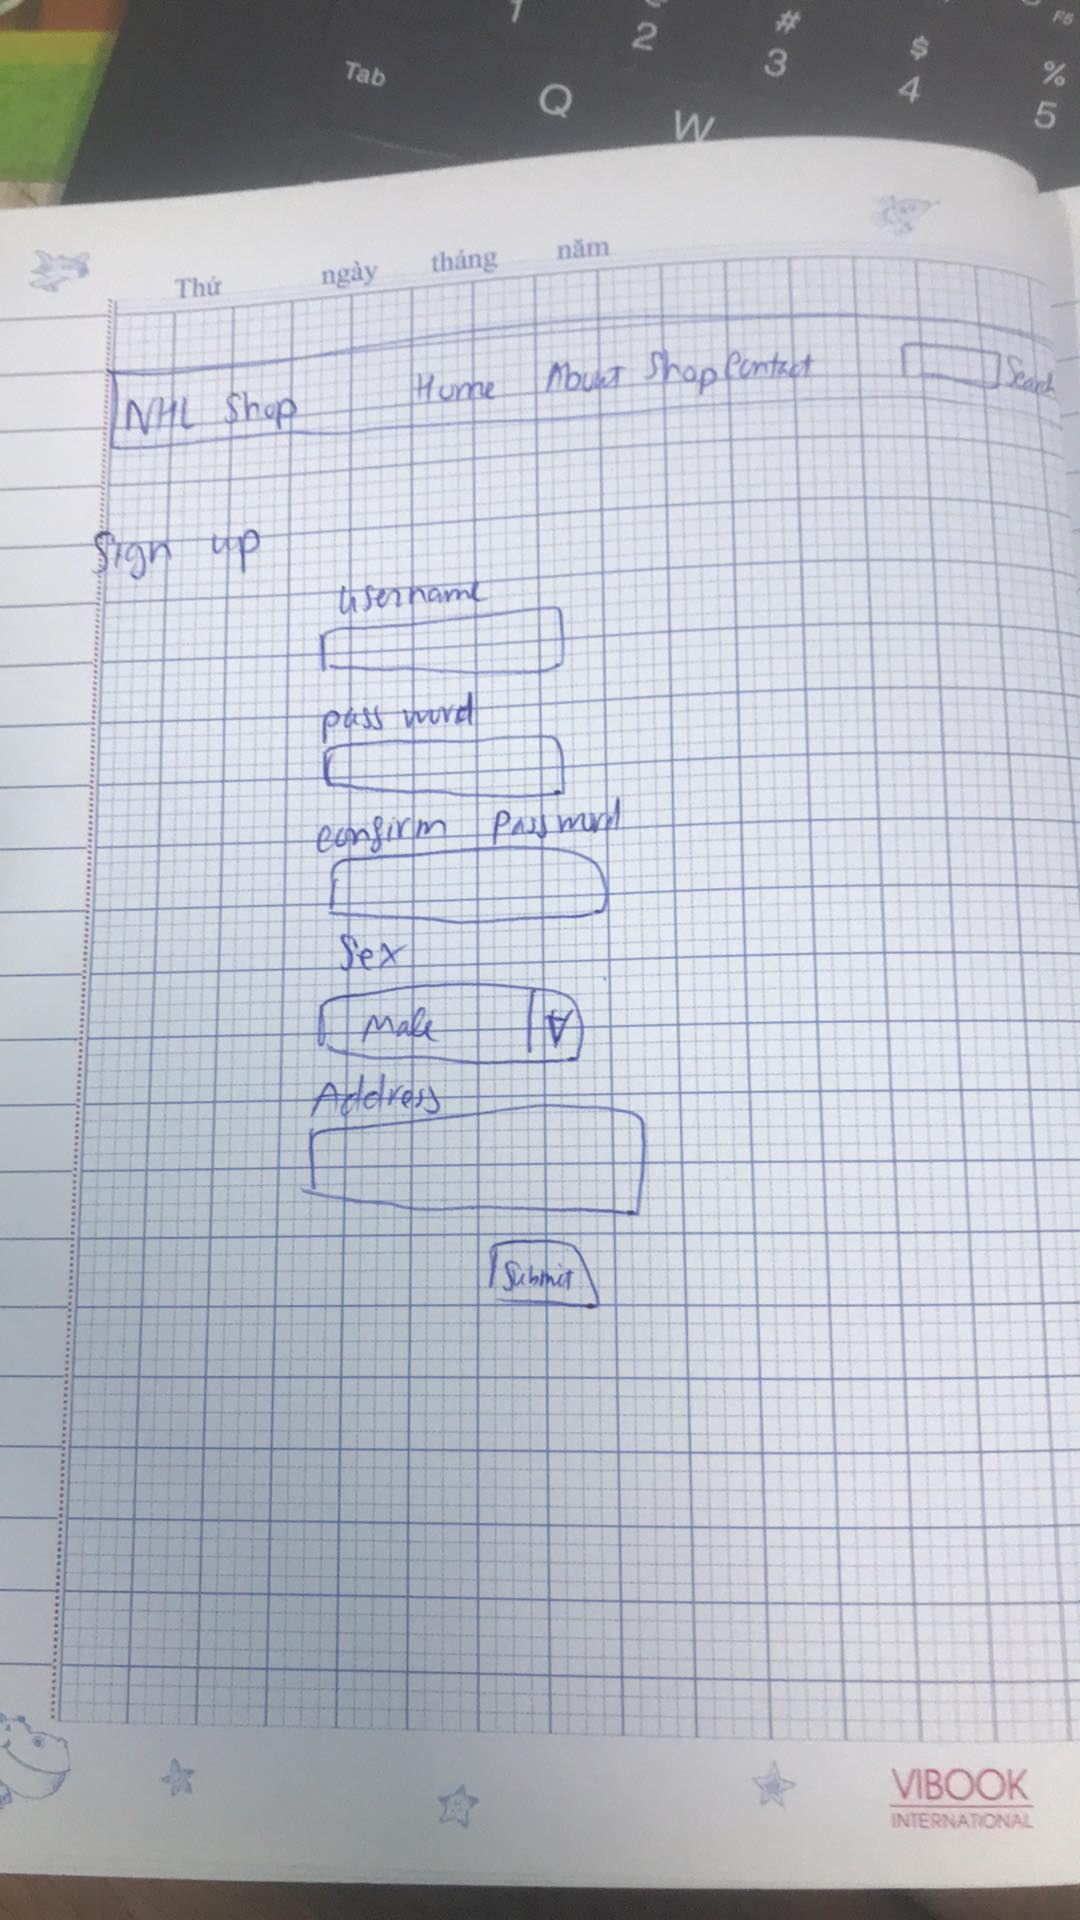 1 2 # 3 $ 4 % 5 F5
Tab Q W
Thứ ngày tháng năm
NHL Shop Home About Shop Contact Search
Sign up
username
pass word
confirm Password
Sex
Male
Address
Submit
VIBOOK
INTERNATIONAL